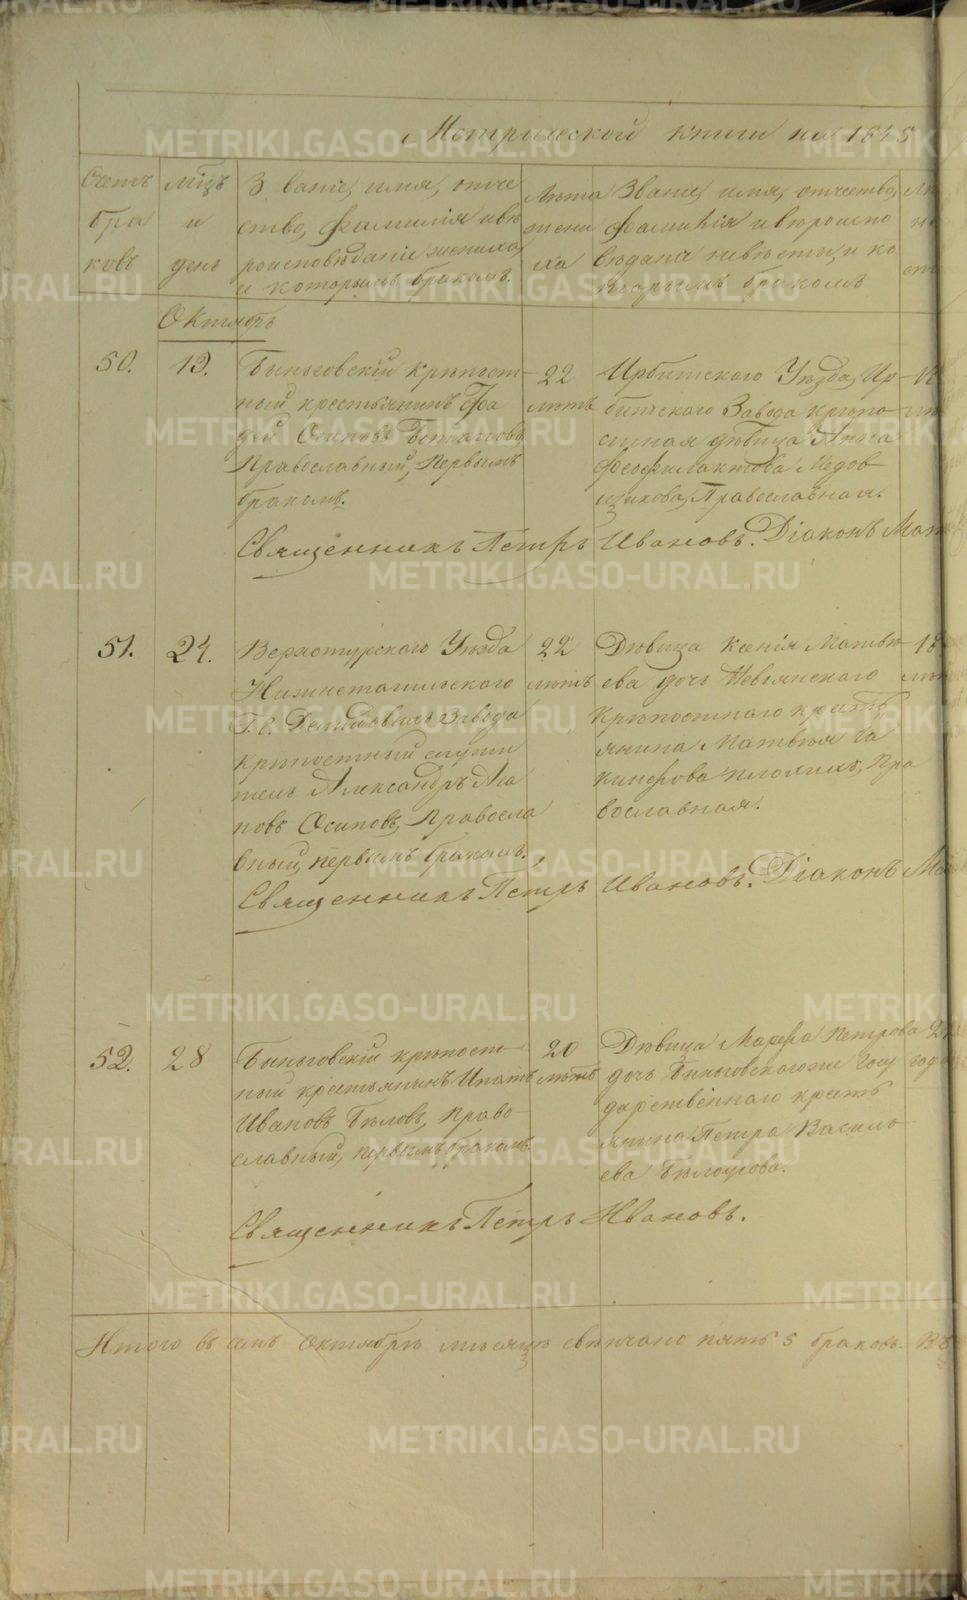 Метрической книги на 1843
Счетъ бра ковъ
Мцъ и день
Званіе, имя, отче
ство, фамилія и вѣ
роисповѣданіе жениха,
и которымъ бракомъ.
Лѣта жени ха
Званіе, имя, отчество,
фамилія и вѣроиспо
вѣданіе невѣсты, и ко
торымъ бракомъ
Октябрь
50.
13.
Быньговскій крѣпост-
ный крестьянинъ Фа
дей Осиповъ
Православный, первымъ
бракомъ.
22
лѣтъ
Ирбитскаго Уѣзда, Ир-
битскаго Завода крѣпо
стная дѣвица Анна
Феофилактова Медов
щикова, Православная.
Священникъ Петръ Ивановъ. Діаконъ Мат
51.
24.
Верхотурскаго Уѣзда
Нижнетагильскаго
Г.г. Демидовыхъ Завода
крѣпостный служи
тель Александръ
новъ Осиповъ, Правосла
вный, первымъ бракомъ.
22
лѣтъ
Дѣвица Ксенія Матвѣ
ева дочь Невьянскаго
Крѣпостнаго кресть
янина Матвѣя Іа
кинфова Плохихъ, Пра
вославная.
18
Священникъ Петръ Ивановъ. Діаконъ Ма
52.
28
Быньговскій крѣпост-
ный крестьянинъ Ипатъ
Ивановъ Бѣловъ, Право
славный, первымъ бракомъ
20
лѣтъ
Дѣвица Марфа Петрова
дочь Быньговскаго же Госу
дарственнаго кресть
янина Петра Василь
ева Бѣлоусова.
2
год
Священникъ Петръ Ивановъ.
Итого въ семъ Октябрѣ мѣсяцѣ свѣнчано пять 5 браковъ. Въ